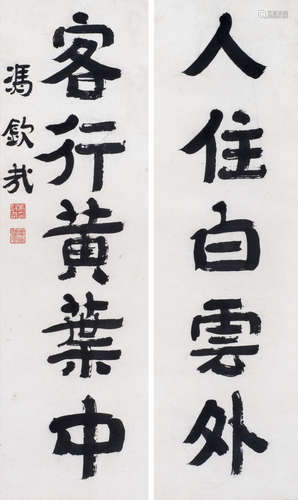 人住白雲外
客行黄葉中
馮欽哉